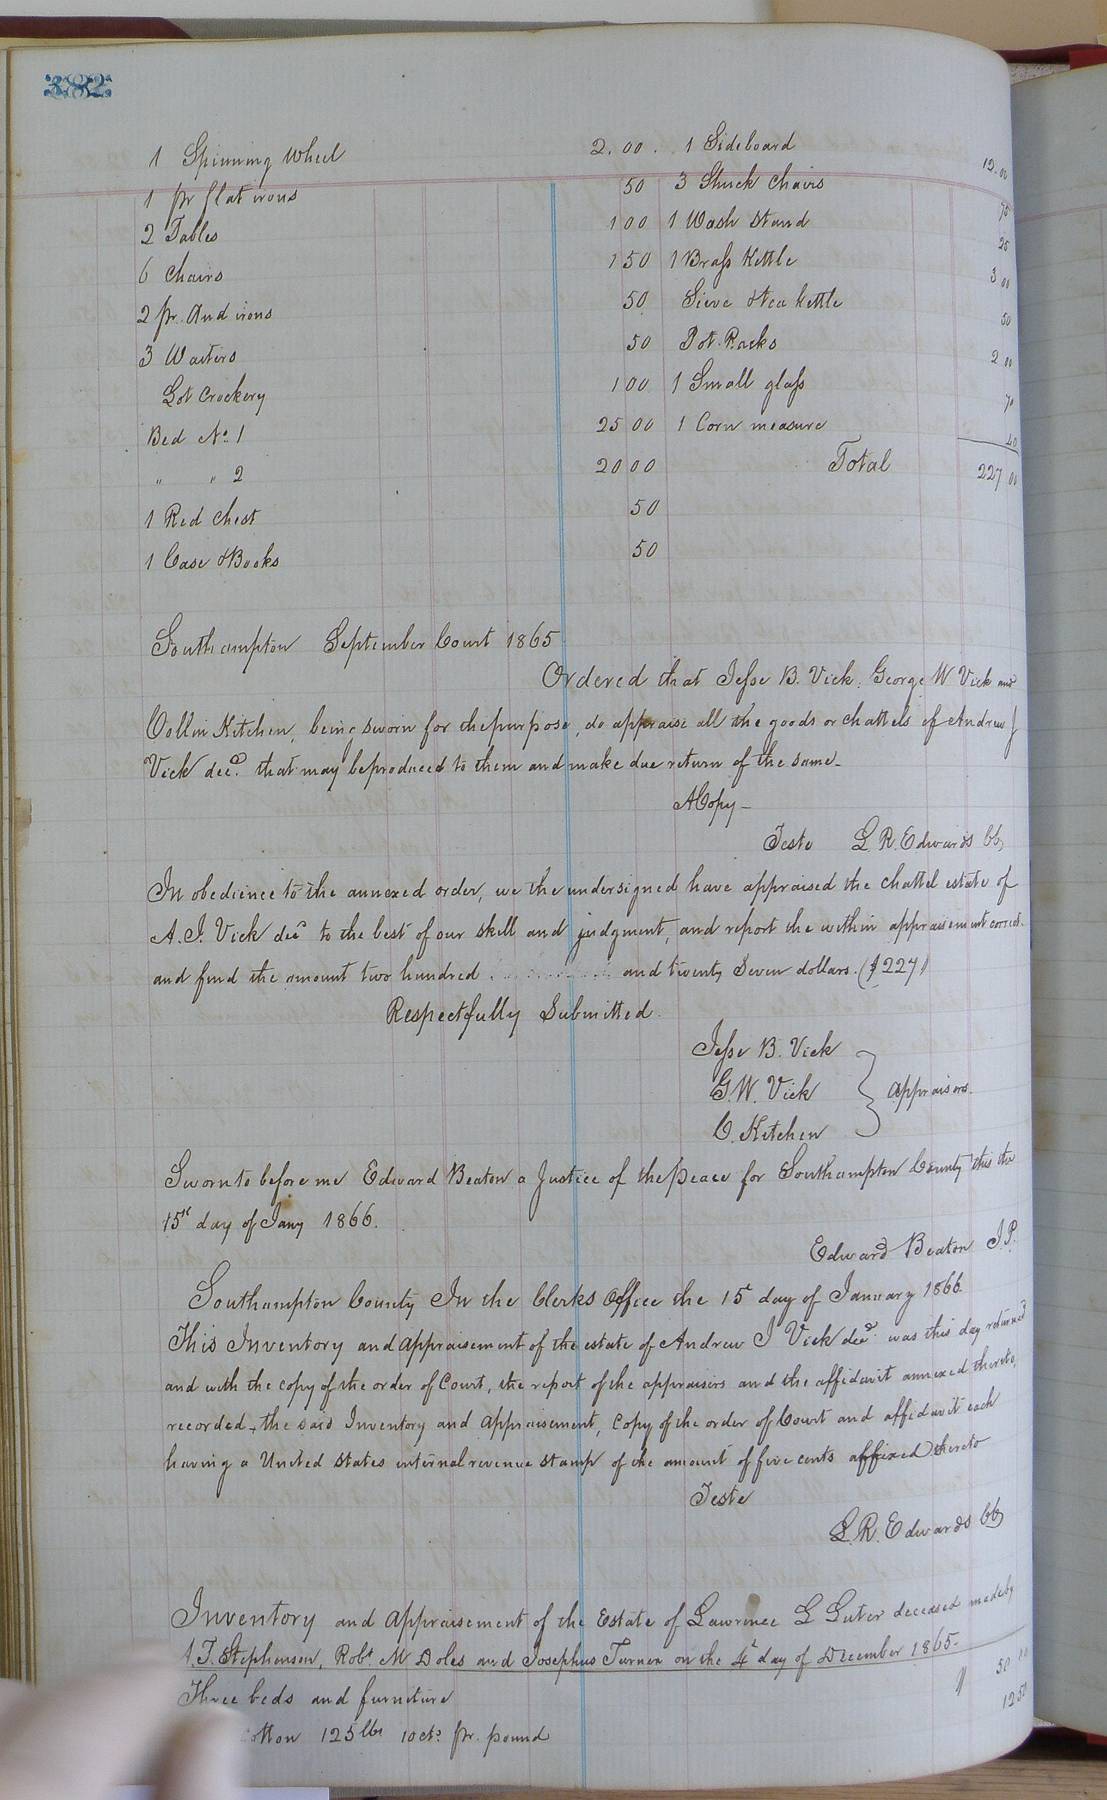 382
1 Spinning Wheel 2.00. 1 Sideboard 12.00
1 pr flat irons 50 3 Stuck Chairs 75
2 Tables 1 00 1 Wash Stand 25
6 Chairs 1 50 1 Brass Kettle 3 00
2 pr. And irons 50 Sieve & tea kettle 50
3 Waiters 50 Pot Racks 2 00
Lot Crockery 1 00 1 Small glass 70
Bed No. 1 25 00 1 Corn measure 40
" " 2 20 00 Total 227 00
1 Red Chest 50
1 Case & Books 50
Southampton September Court 1865
Ordered that Jesse B. Vick, George W Vick and
Collin Kitchen, being sworn for the purpose, do appraise all the goods or chattels of Andrew J
Vick decd. that may be produced to them and make due return of the same_
A Copy_
Teste L R. Edwards CC,
In obedience to the annexed order, we the undersigned have appraised the chattel estate of
A. J. Vick decd to the best of our skill and judgment, and report the within appraisement correct.
and find the amount two hundred and twenty Seven dollars. ($227)
Respectfully Submitted.
Jesse B. Vick
G. W. Vick } appraisers.
C. Kitchen
Sworn to before me Edward Beaton a Justice of the peace for Southampton County this the
15th day of Jany 1866.
Edward Beaton J.P.
Southampton County In the Clerks Office the 15 day of January 1866
This Inventory and appraisement of the estate of Andrew J Vick decd. was this day returned
and with the copy of the order of Court, the report of the appraisers and the affidavit annexed thereto,
recorded, the said Inventory and appraisement, Copy of the order of Court and affidavit each
having a United States internal revenue stamp of the amount of five cents affixed thereto
Teste
L. R. Edwards CC
Inventory and appraisement of the Estate of Lawrence G Guter deceased made by
J. T. Stephenson, Robt M Doles and Josephus Turner on the 4th day of December 1865.
Three beds and furniture 50 00
cotton 125 lbs 10 cts pr. pound 12 50